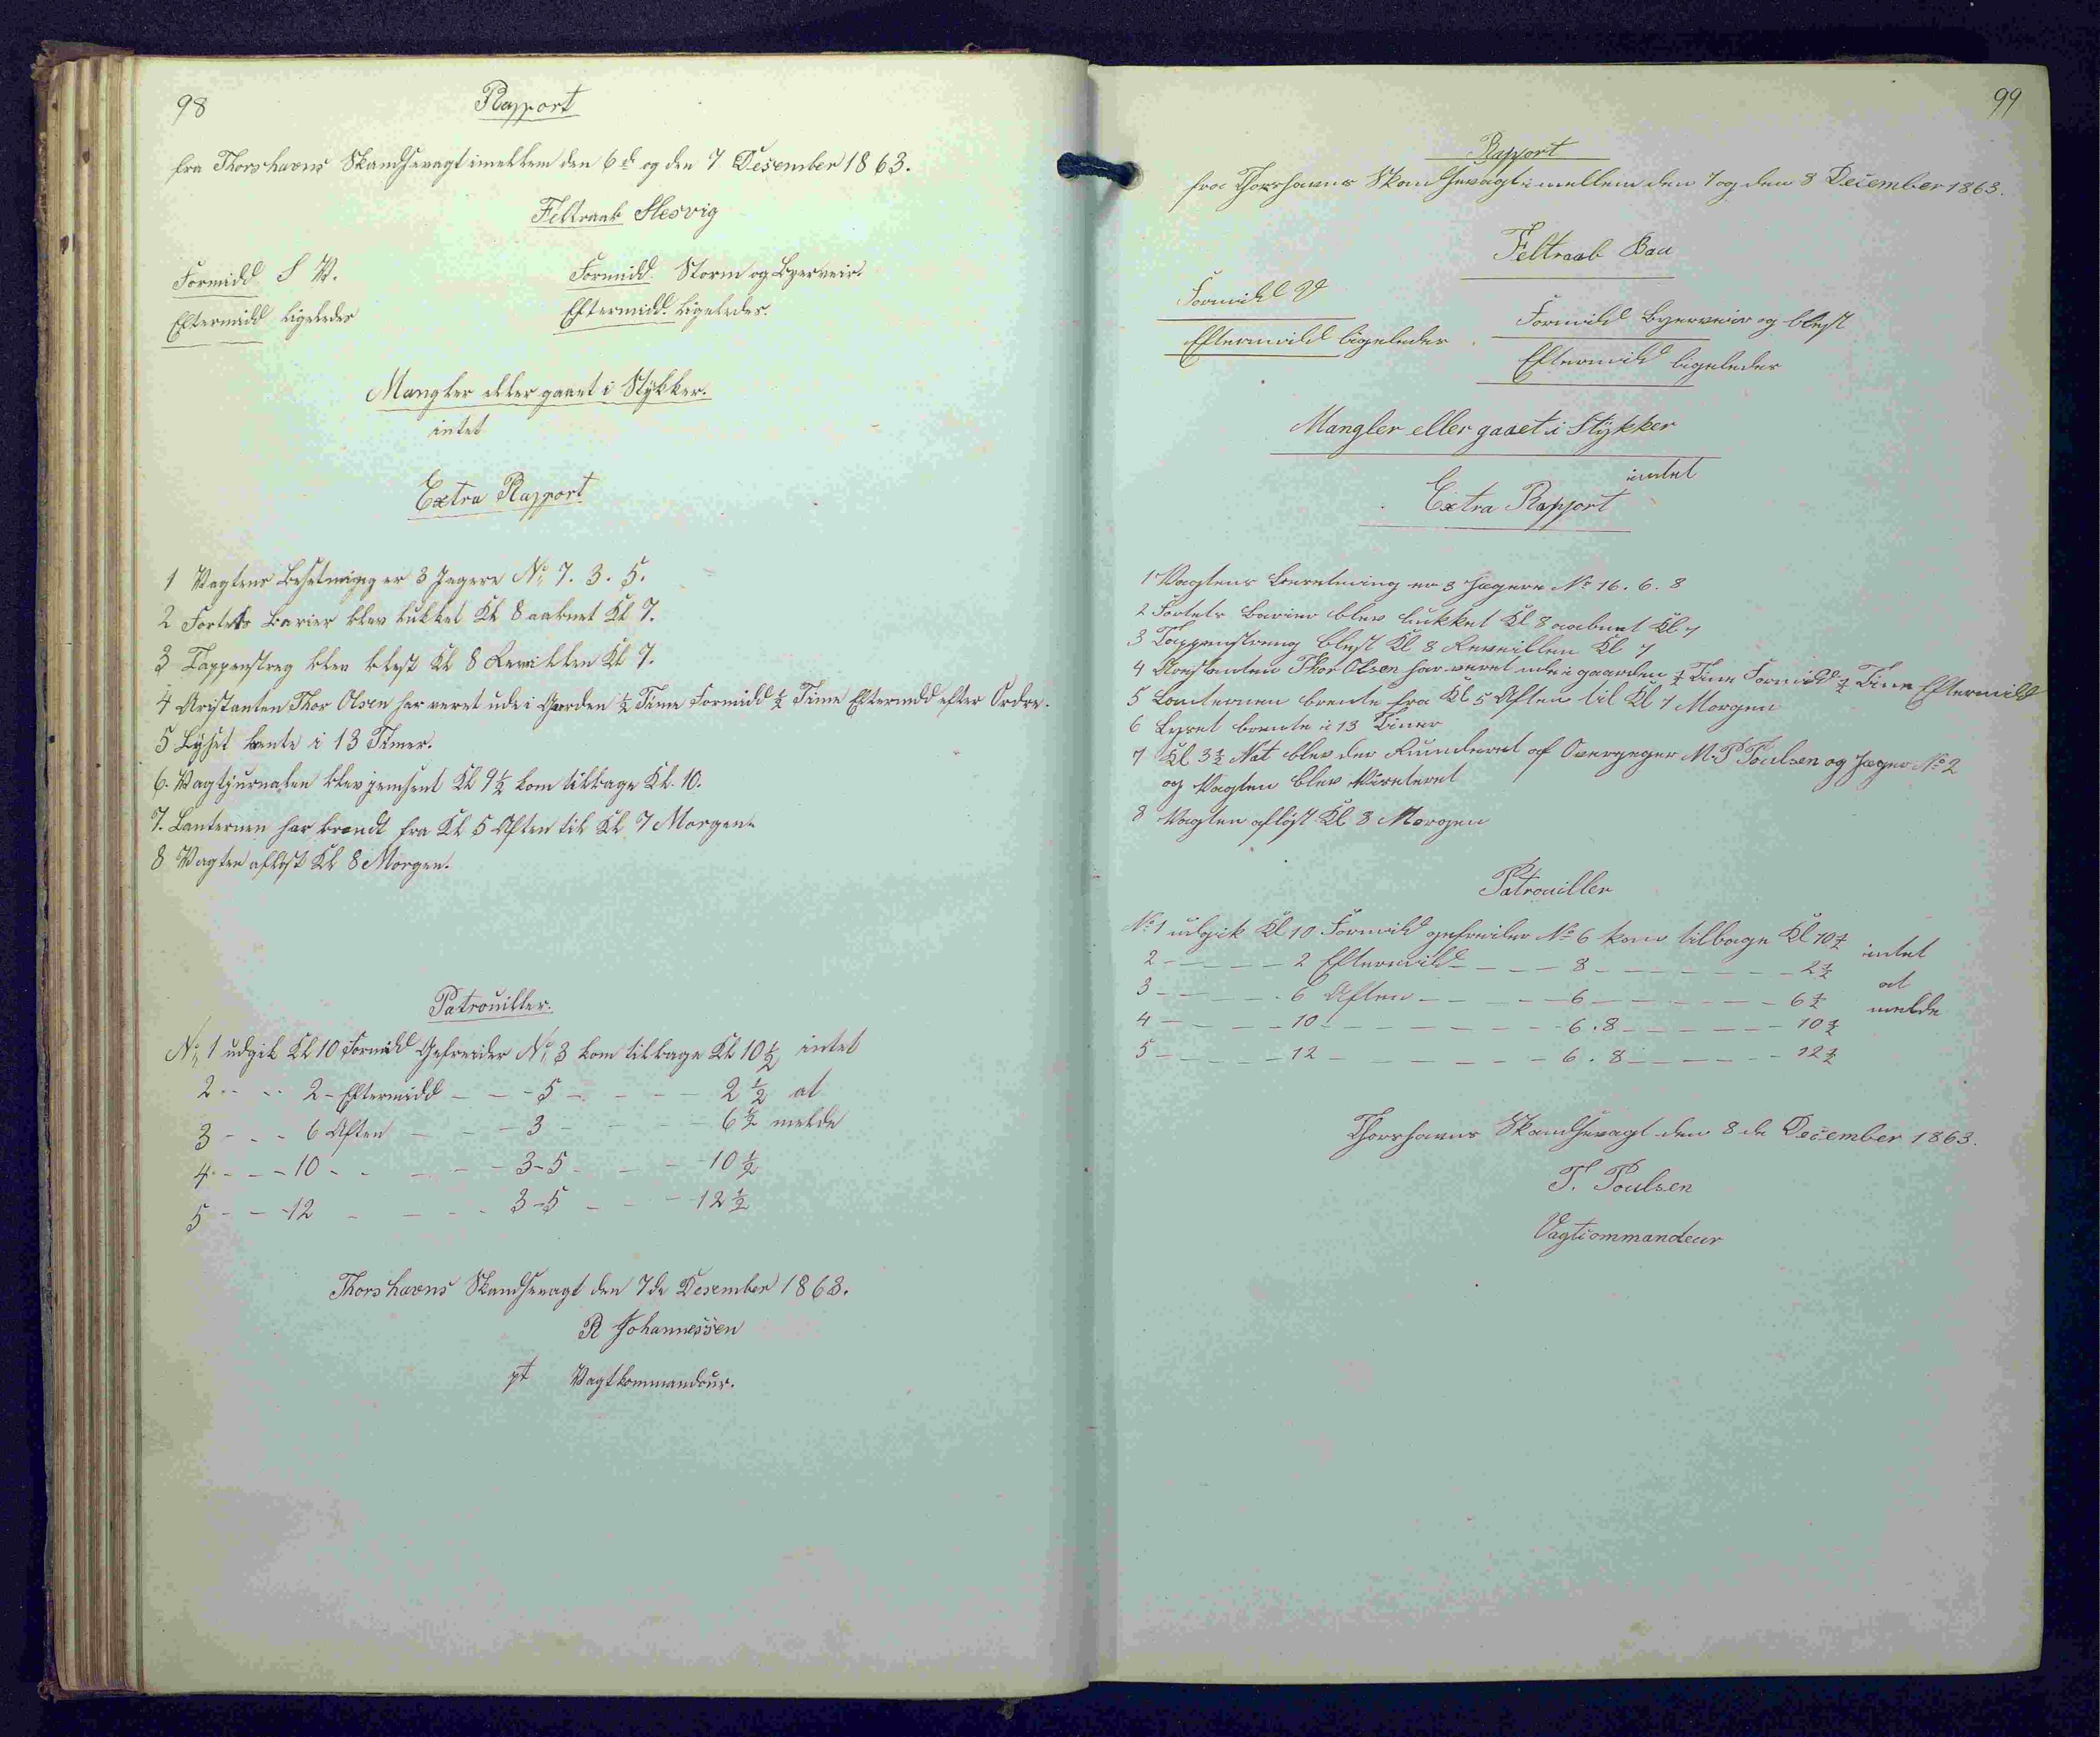 98
Rapport
fra Thorshavns Skandsevagt imellem den 6d og den 7 Desember 1863.
Feltraab Slesvig
Formidd S V. Formidd. Storm og Byerveir.
Eftermidd ligeledes Eftermidd. ligeledes.
Mangler eller gaaet i Stykker.
intet
Extra Rapport
1 Vagtens Besetning er 3 Jegere No, 7. 3. 5.
2 Fortets Barier blev lukket Kl 8 aabnet Kl 7.
3 Tappenstreg blev blest Kl 8 Revillen Kl 7.
4 Aristanten Thor Olsen har veret ude i Gaarden ½ Time Formidd ½ Time Eftermdd efter Ordre.
5 Lyset brente i 13 Timer.
6. Vagtjurnalen blev jemsent Kl 9½ kom tilbage Kl. 10.
7. Lanternen har brendt fra Kl 5 Aften til Kl 7 Morgen.
8 Vagten aflöst Kl 8 Morgen.
Patrouiller.
No, 1 udgik Kl 10 Formidd Gefreider No, 3 kom tilbage Kl 10½ intet
2 - - - - 2 - Eftermidd - - - 5 - - - - 2½ at
3 - - - 6 Aften - - - 3 - - - - 6½ melde
4 - - - 10 - - - - - 3-5 - - - 10½
5 - - - 12 - - - - 3-5 - - - 12½
Thorshavns Skandsevagt den 7de Desember 1863.
R Johannessen
pt Vagtkommandour.
99
Rapport
fra Thorshavns Skandsevagt imellem den 7 og den 8 December 1863.
Feltraab Bau
Formidd V Formidd Byerveir og blest
Eftermidd ligeledes Eftermidd ligeledes
Mangler eller gaaet i Stykker
intet
Extra Rapport
1 Vagtens Besetning er 3 Jægere No 16. 6. 8
2 Fortets Barier blev lukket Kl 8 aabnet Kl 7
3 Tappenstreng blest Kl 8 Reveillen Kl 7
4 Arestanten Thor Olsen har veret ude i gaarden ½ Time Formidd ½ Time Eftermidd
5 Lanternen brente fra Kl 5 Aften til Kl 7 Morgen
6 Lyset brente i 13 Timer
7 Kl 3½ Nat blev der Runderet af Overjeger M. P Poulsen og Jæger No 2
og Vagten blev Visiteret
8 Vagten aflöst Kl 8 Morgen
Patrouiller
No 1 udgik Kl 10 Formidd gefreider No 6 kom tilbage Kl 10½ intet
2 - - - - 2 Eftermidd - - - - 8 - - - - - - 2½ at
3 - - - - 6 Aften - - - - - 6 - - - - - - 6½ melde
4 - - - - 10 - - - - - - - 6. 8 - - - - - 10½
5 - - - - 12 - - - - - - 6. 8 - - - - - 12½
Thorshavns Skandsevagt den 8 de December 1863.
P. Poulsen
Vagtcommandeur